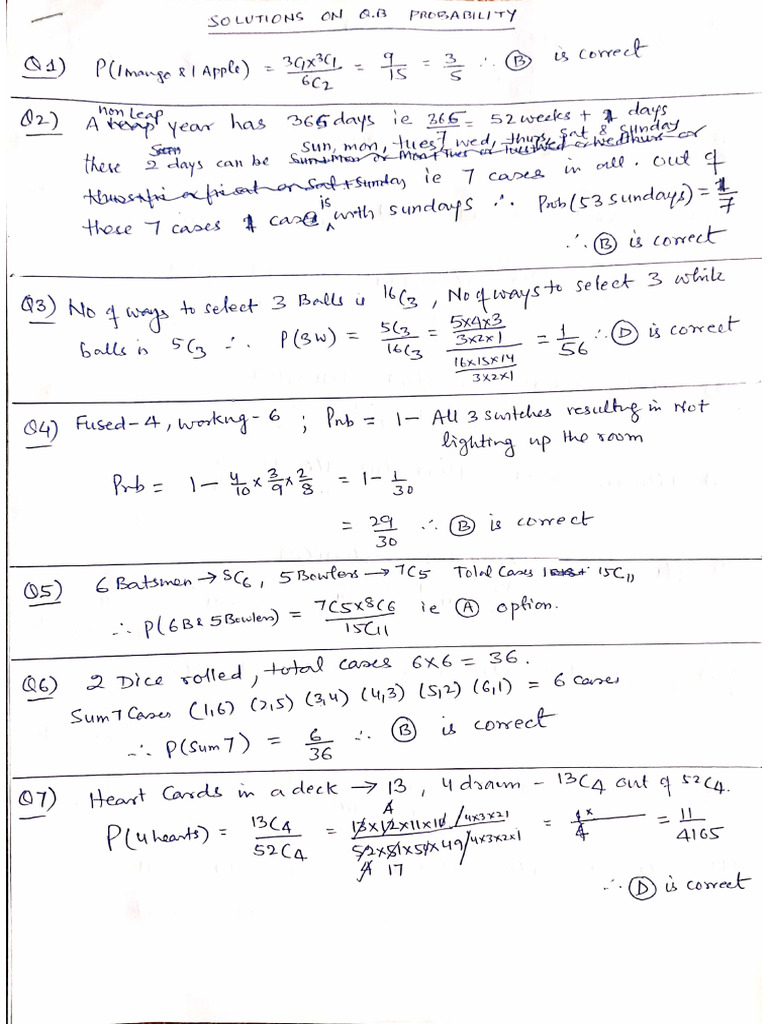 SOLUTIONS ON Q.B PROBABILITY
Q1) P(1mango & 1 Apple) = 3C1x3C1/6C2 = 9/15 = 3/5 ∴ Ⓑ is correct
Q2) A non Leap year has 365 days ie 365/7 = 52 weeks + 1 days
these seven days can be sun, mon, tues, wed, thurs, sat & sunday
ie 7 cases in all. Out of
these 7 cases 1 case is with sundays ∴ Prob(53 sundays) = 1/7
∴ Ⓑ is correct
Q3) No of ways to select 3 Balls is 16C3, No of ways to select 3 while
balls is 5C3 ∴ P(3W) = 5C3/16C3 = 5x4x3/3x2x1 / 16x15x14/3x2x1 = 1/56 ∴ Ⓓ is correct
Q4) Fused-4, working-6 ; Prob = 1- All 3 switches resulting in Not
lighting up the room
Prob = 1- 4/10 x 3/9 x 2/8 = 1- 1/30
= 29/30 ∴ Ⓑ is correct
Q5) 6 Batsmen → 8C6, 5 Bowlers → 7C5 Total Cases 15C11
∴ P(6B & 5 Bowlers) = 7C5x8C6/15C11 ie Ⓐ option.
Q6) 2 Dice rolled, total cases 6x6 = 36.
Sum 7 Cases (1,6) (2,5) (3,4) (4,3) (5,2) (6,1) = 6 cases
∴ P(Sum 7) = 6/36 ∴ Ⓑ is correct
Q7) Heart Cards in a deck → 13, 4 drawn - 13C4 out of 52C4.
P(4 hearts) = 13C4/52C4 = 13x12x11x10/4x3x21 / 52x51x50x49/4x3x2x1 = 1x/4 = 11/4165
4 17
∴ Ⓓ is correct